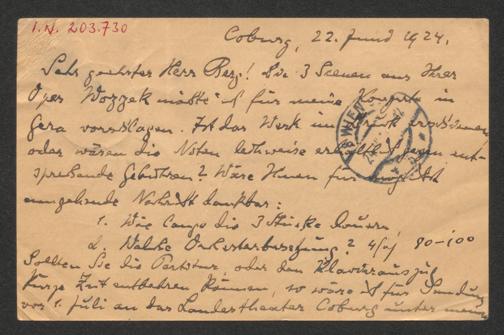 I.N. 203.730
Coburg, 22. Juni 1924.
Sehr geehrter Herr Berg! Die 3 Scenen aus Ihrer
Oper Wozzek möchte ich für meine Konzerte in
Gera vorschlagen. Ist das Werk im erschienen
oder wären die Noten leihweise gegen ent-
sprechende Gebühren? Wäre Ihnen für möglichst
umgehende Nachricht dankbar:
1. Wie lange die 3 Stücke dauern,
2. Welche Orchesterbesetzung? 80-100
Sollten Sie die Partitur, oder den Klavierauszug
kurze Zeit entbehren können, so wäre ich für Sendung
vor 1. Juli an das Landestheater Coburg unter